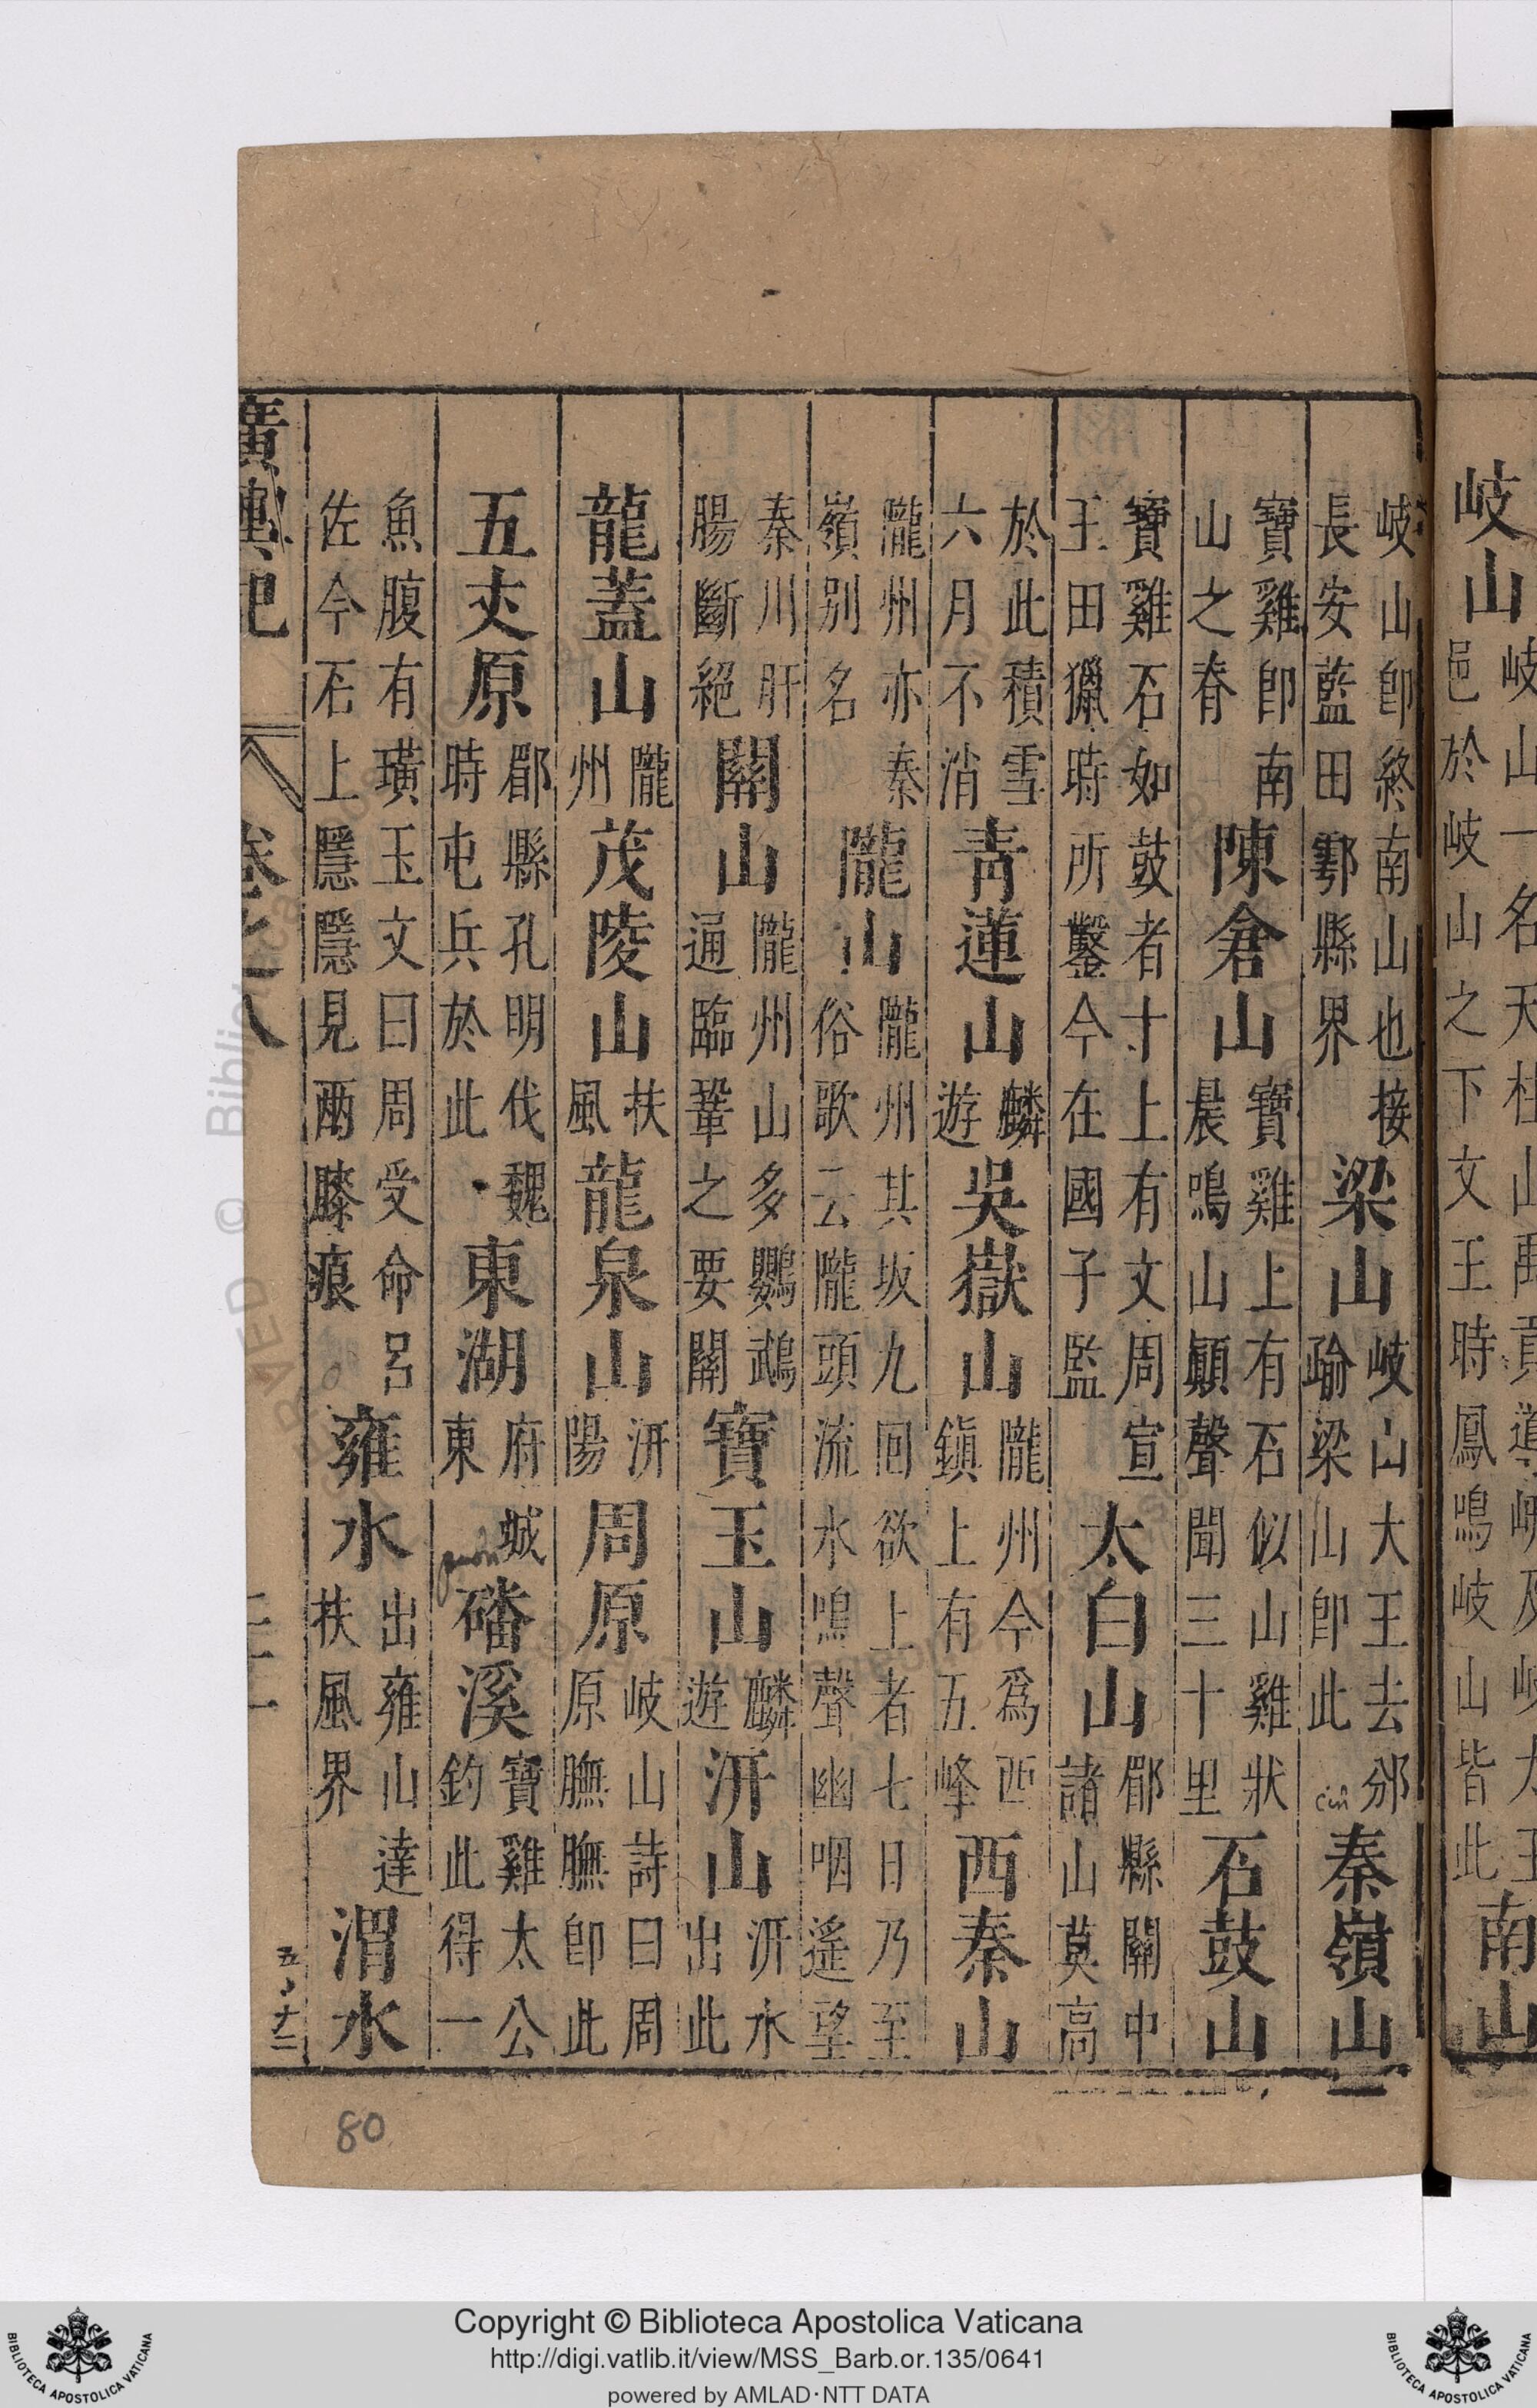 岐山岐山一名天柱山禹貢導岍及岐大王邑於岐山之下文王時鳳鳴岐山皆此南山
岐山即終南山也接長安藍田鄠縣界梁山岐山大王去邠踰梁山即此秦嶺山
cin
寶雞即南山之脊陳倉山寶雞上有石似山雞狀晨鳴山顛聲聞三十里石鼓山
寶雞石如鼓者十上有文周宣王田獵時所鑿今在國子監太白山郿縣關中諸山莫高
於此積雪六月不消青蓮山麟遊吳嶽山隴州今爲西鎮上有五峰西秦山
隴州亦秦嶺別名隴山隴州其坂九囘欲上者七日乃至俗歌云隴頭流水鳴聲幽咽遙望
秦川肝腸斷絕關山隴州山多鸚鵡通臨鞏之要關寶玉山麟遊汧山汧水出此
龍蓋山隴州茂陵山扶風龍泉山汧陽周原岐山詩曰周原膴膴即此
五丈原郿縣孔明伐魏時屯兵於此東湖府城東磻溪寶雞太公釣此得一
魚腹有璜玉文曰周受命呂佐今石上隱隱見兩膝痕雍水出雍山達扶風界渭水
廣輿記 卷之八
80
© Biblioteca Apostolica Vaticana
Copyright © Biblioteca Apostolica Vaticana
http://digi.vatlib.it/view/MSS_Barb.or.135/0641
powered by AMLAD·NTT DATA
BIBLIOTECA APOSTOLICA VATICANA
BIBLIOTECA APOSTOLICA VATICANA